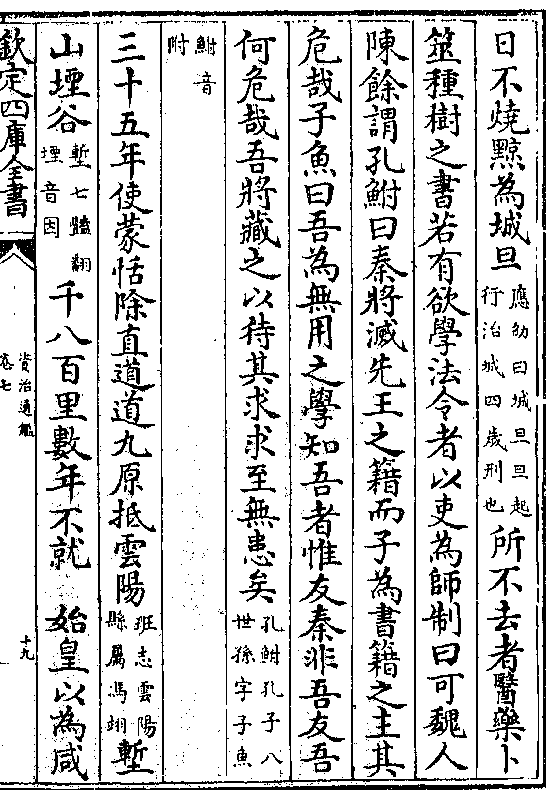 日不燒黥為城旦應劭曰城旦旦起行治城四歲刑也所不去者醫藥卜
筮種樹之書若有欲學法令者以吏為師制曰可魏人
陳餘謂孔鮒曰秦將滅先王之籍而子為書籍之主其
危哉子魚曰吾為無用之學知吾者惟友秦非吾友吾
何危哉吾將藏之以待其求求至無患矣孔鮒孔子八世孫字子魚
鮒音附
三十五年使蒙恬除直道道九原抵雲陽班志雲陽縣屬馮翊塹
山堙谷塹七豔翻堙音因千八百里數年不就 始皇以為咸
欽定四庫全書
資治通鑑
卷七
十九